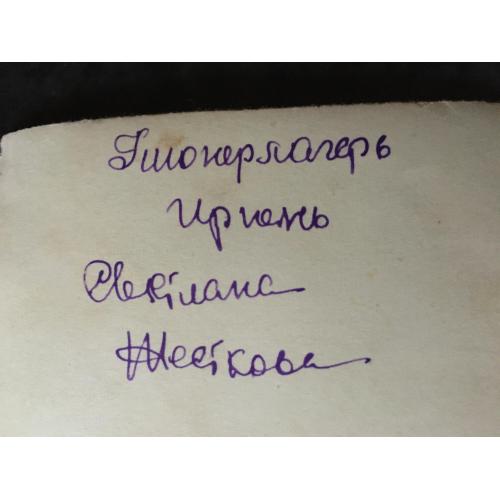 Пионерлагерь
Ирпень
Светлана
Жесткова